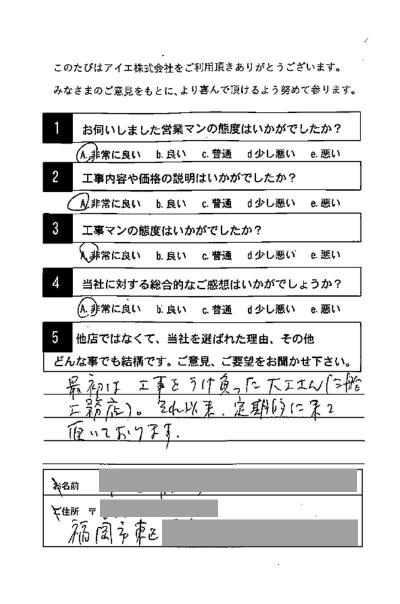 このたびはアイエ株式会社をご利用頂きありがとうございます。
みなさまのご意見をもとに、より喜んで頂けるよう努めて参ります。
1 お伺いしました営業マンの態度はいかがでしたか?
A.非常に良い b.良い c.普通 d少し悪い e.悪い
2 工事内容や価格の説明はいかがでしたか?
A.非常に良い b.良い c.普通 d少し悪い e.悪い
3 工事マンの態度はいかがでしたか?
A.非常に良い b.良い c.普通 d少し悪い e.悪い
4 当社に対する総合的なご感想はいかがでしょうか?
A.非常に良い b.良い c.普通 d少し悪い e.悪い
5 他店ではなくて、当社を選ばれた理由、その他
どんな事でも結構です。ご意見、ご要望をお聞かせ下さい。
最初は 工事をうけ負った大工さん(
工務店)。それ以来、定期的に来て
頂いております。
お名前
ご住所 〒
福岡市東区